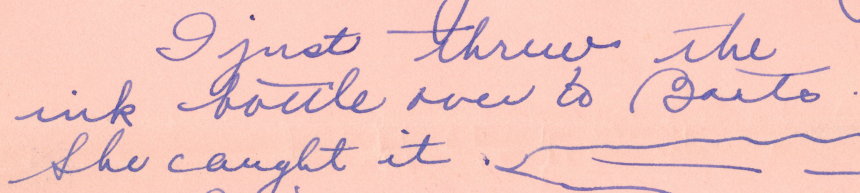 I just threw the
ink bottle over to Barto.
She caught it.